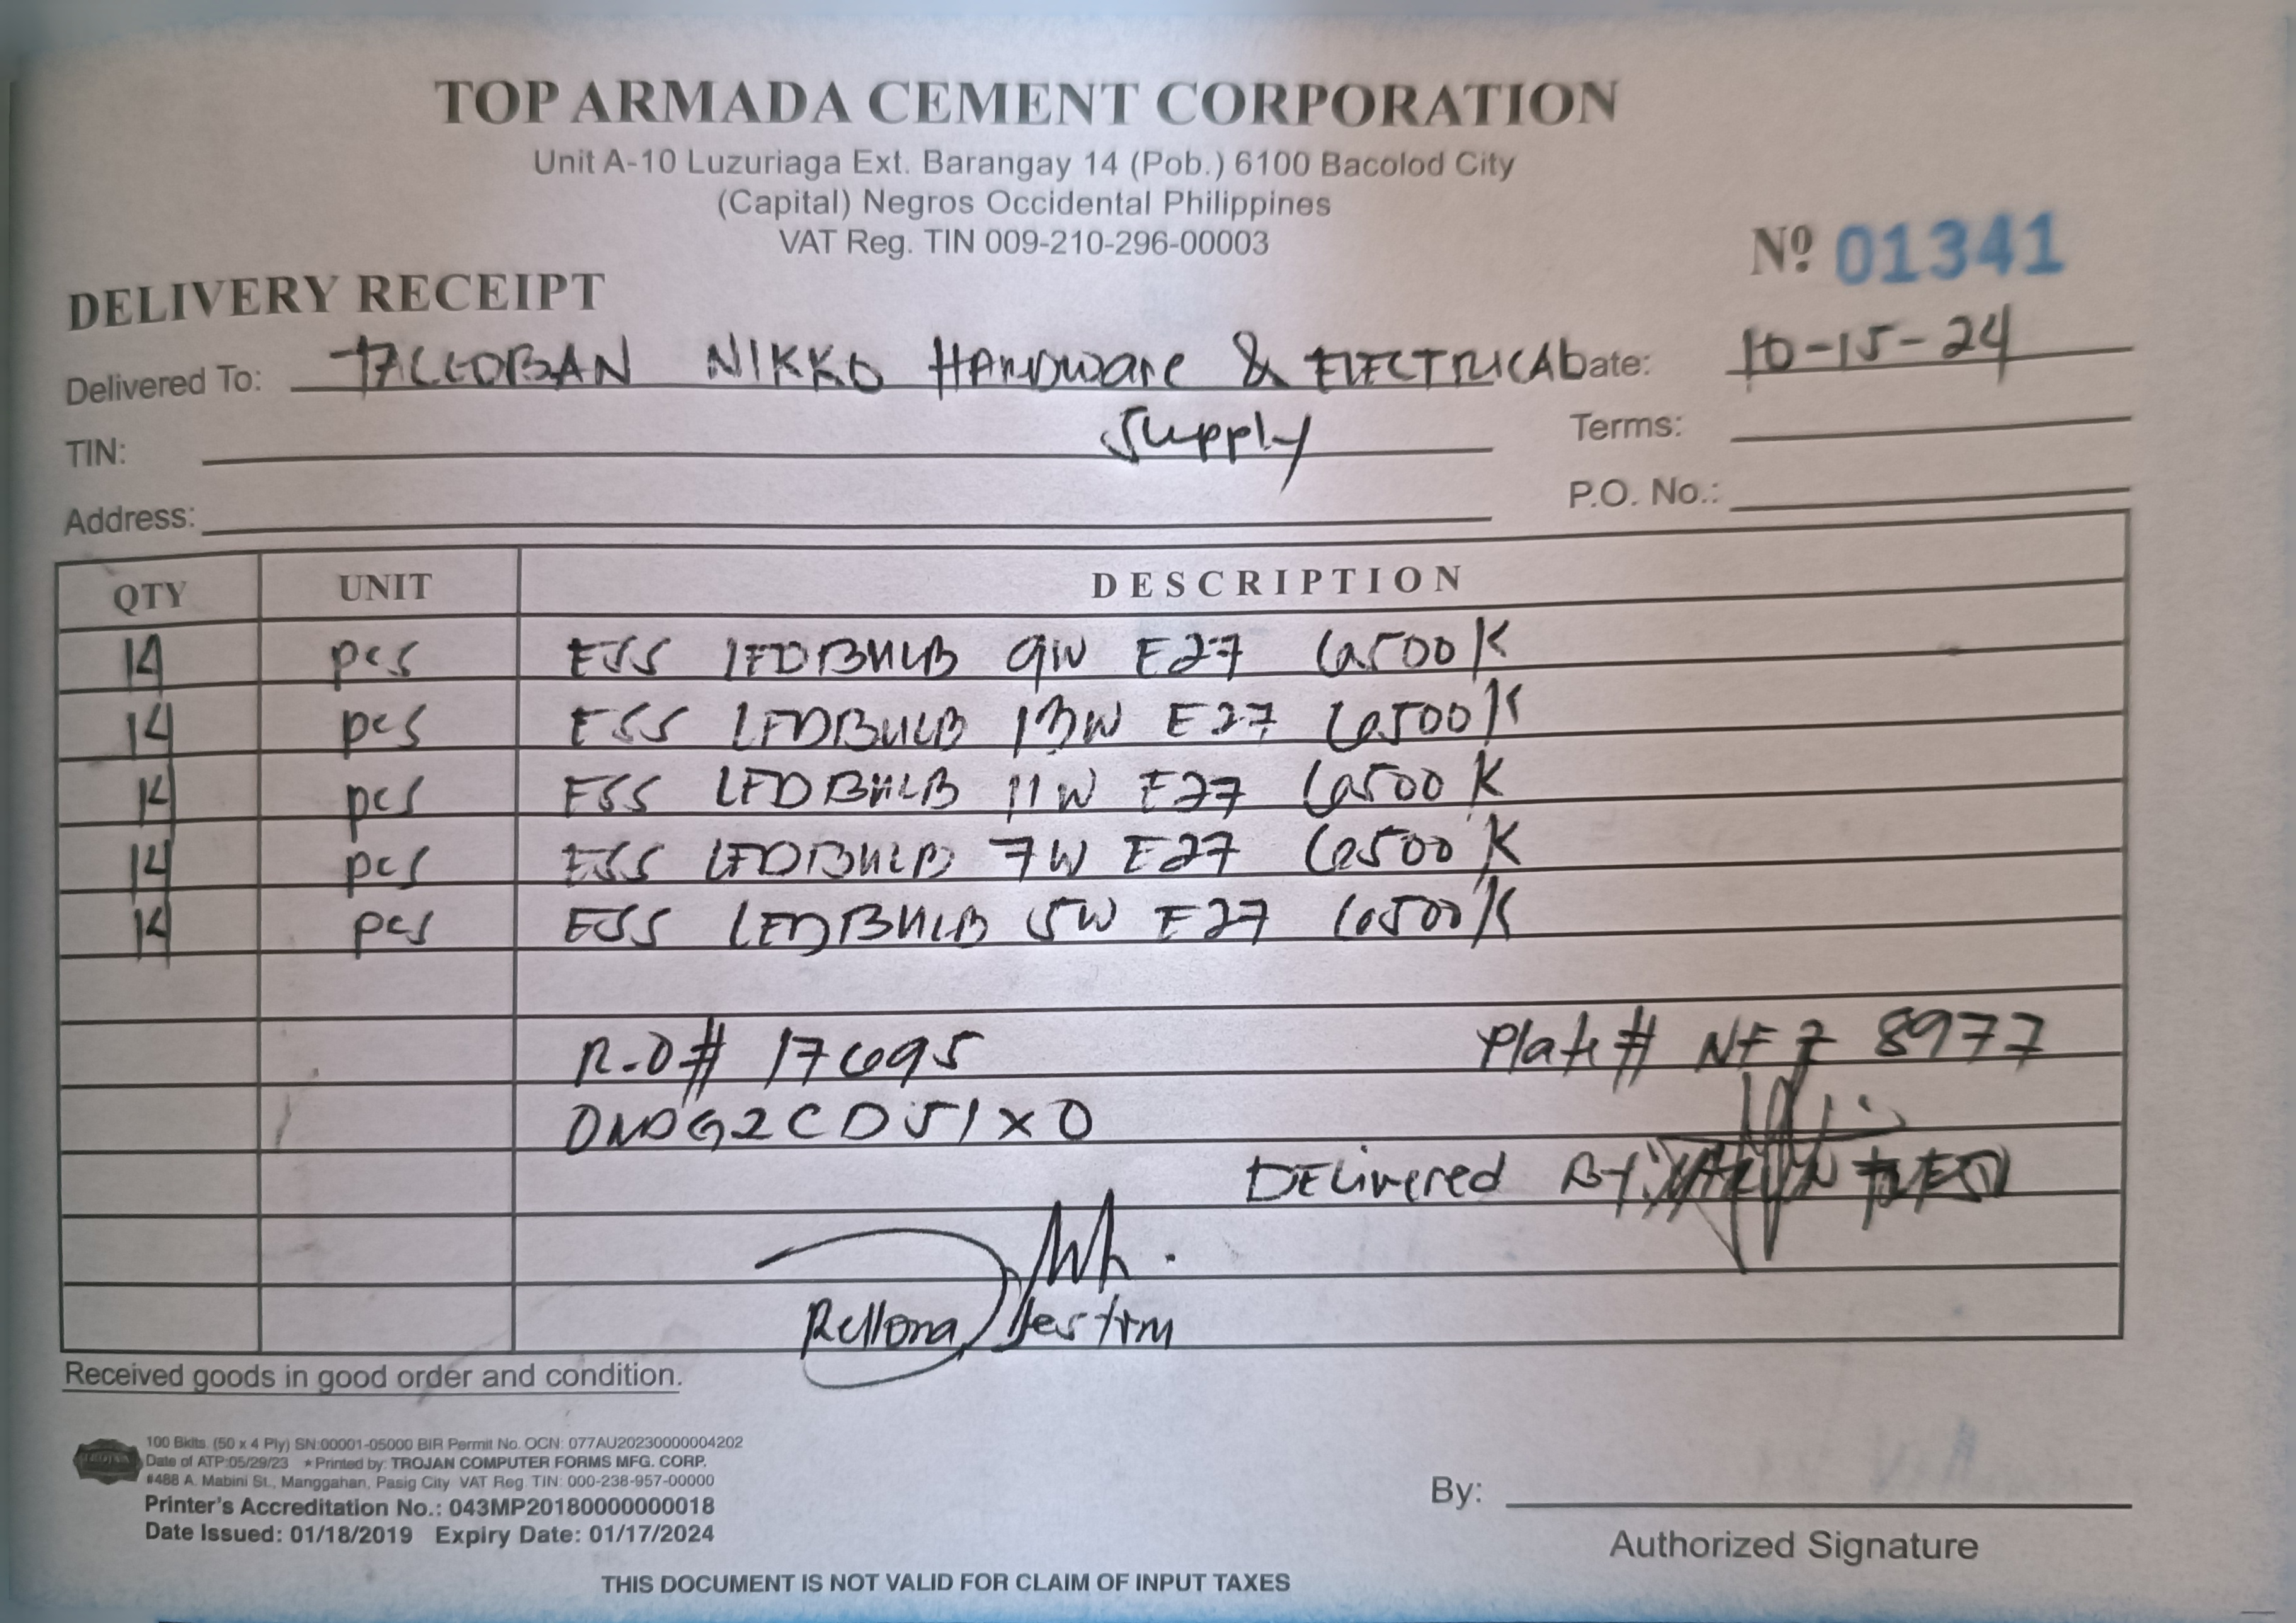 TOP ARMADA CEMENT CORPORATION
Unit A-10 Luzuriaga Ext. Barangay 14 (Pob.) 6100 Bacolod City
(Capital) Negros Occidental Philippines
VAT Reg. TIN 009-210-296-00003
Nº 01341
DELIVERY RECEIPT
Delivered To: TACLOBAN NIKKO Hardware & ELECTRICAL Date: 10-15-24
Supply
TIN: Terms:
Address: P.O. No.:
QTY UNIT DESCRIPTION
14 pcs ESS LEDBULB 9W E27 6500K
14 pcs ESS LEDBULB 13W E27 6500K
14 pcs ESS LEDBULB 11W E27 6500K
14 pcs ESS LEDBULB 7W E27 6500K
14 pcs ESS LEDBULB 5W E27 6500K
R.O# 17695 Plate# NF7 8977
DNDG2CD51XO
DELivered By:
Rellona
Received goods in good order and condition.
100 Bklts. (50 x 4 Ply) SN:00001-05000 BIR Permit No. OCN: 077AU20230000004202
Date of ATP:05/29/23 ★ Printed by: TROJAN COMPUTER FORMS MFG. CORP.
#488 A. Mabini St., Manggahan, Pasig City VAT Reg. TIN: 000-238-957-00000
Printer's Accreditation No.: 043MP20180000000018
Date Issued: 01/18/2019 Expiry Date: 01/17/2024
By:
Authorized Signature
THIS DOCUMENT IS NOT VALID FOR CLAIM OF INPUT TAXES